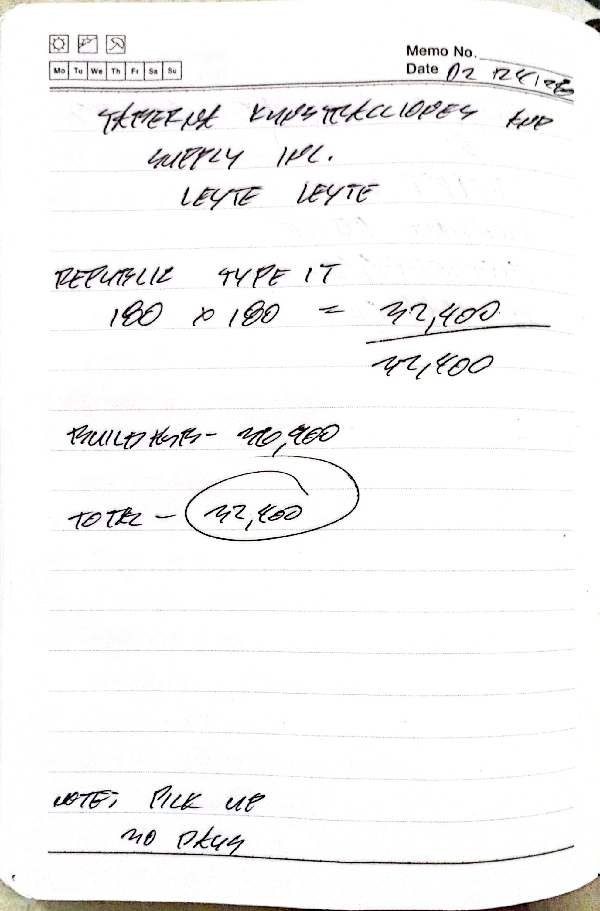 Mo Tu We Th Fr Sa Su
Memo No.
Date 02 124/25
KUNSTRACCIONES AND
SUPPLY INC.
LEYTE LEYTE
REPUBLIC TYPE IT
180 x 180 = 32,400
32,400
30,900
TOTAL - 32,400
NOTE: PICK UP
30 DAYS